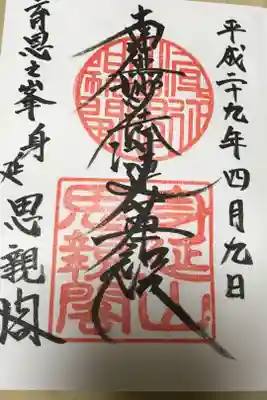 平成二十九年四月九日
南無妙法蓮華経
育恩之峯身延
思親閣
身延山
思親閣